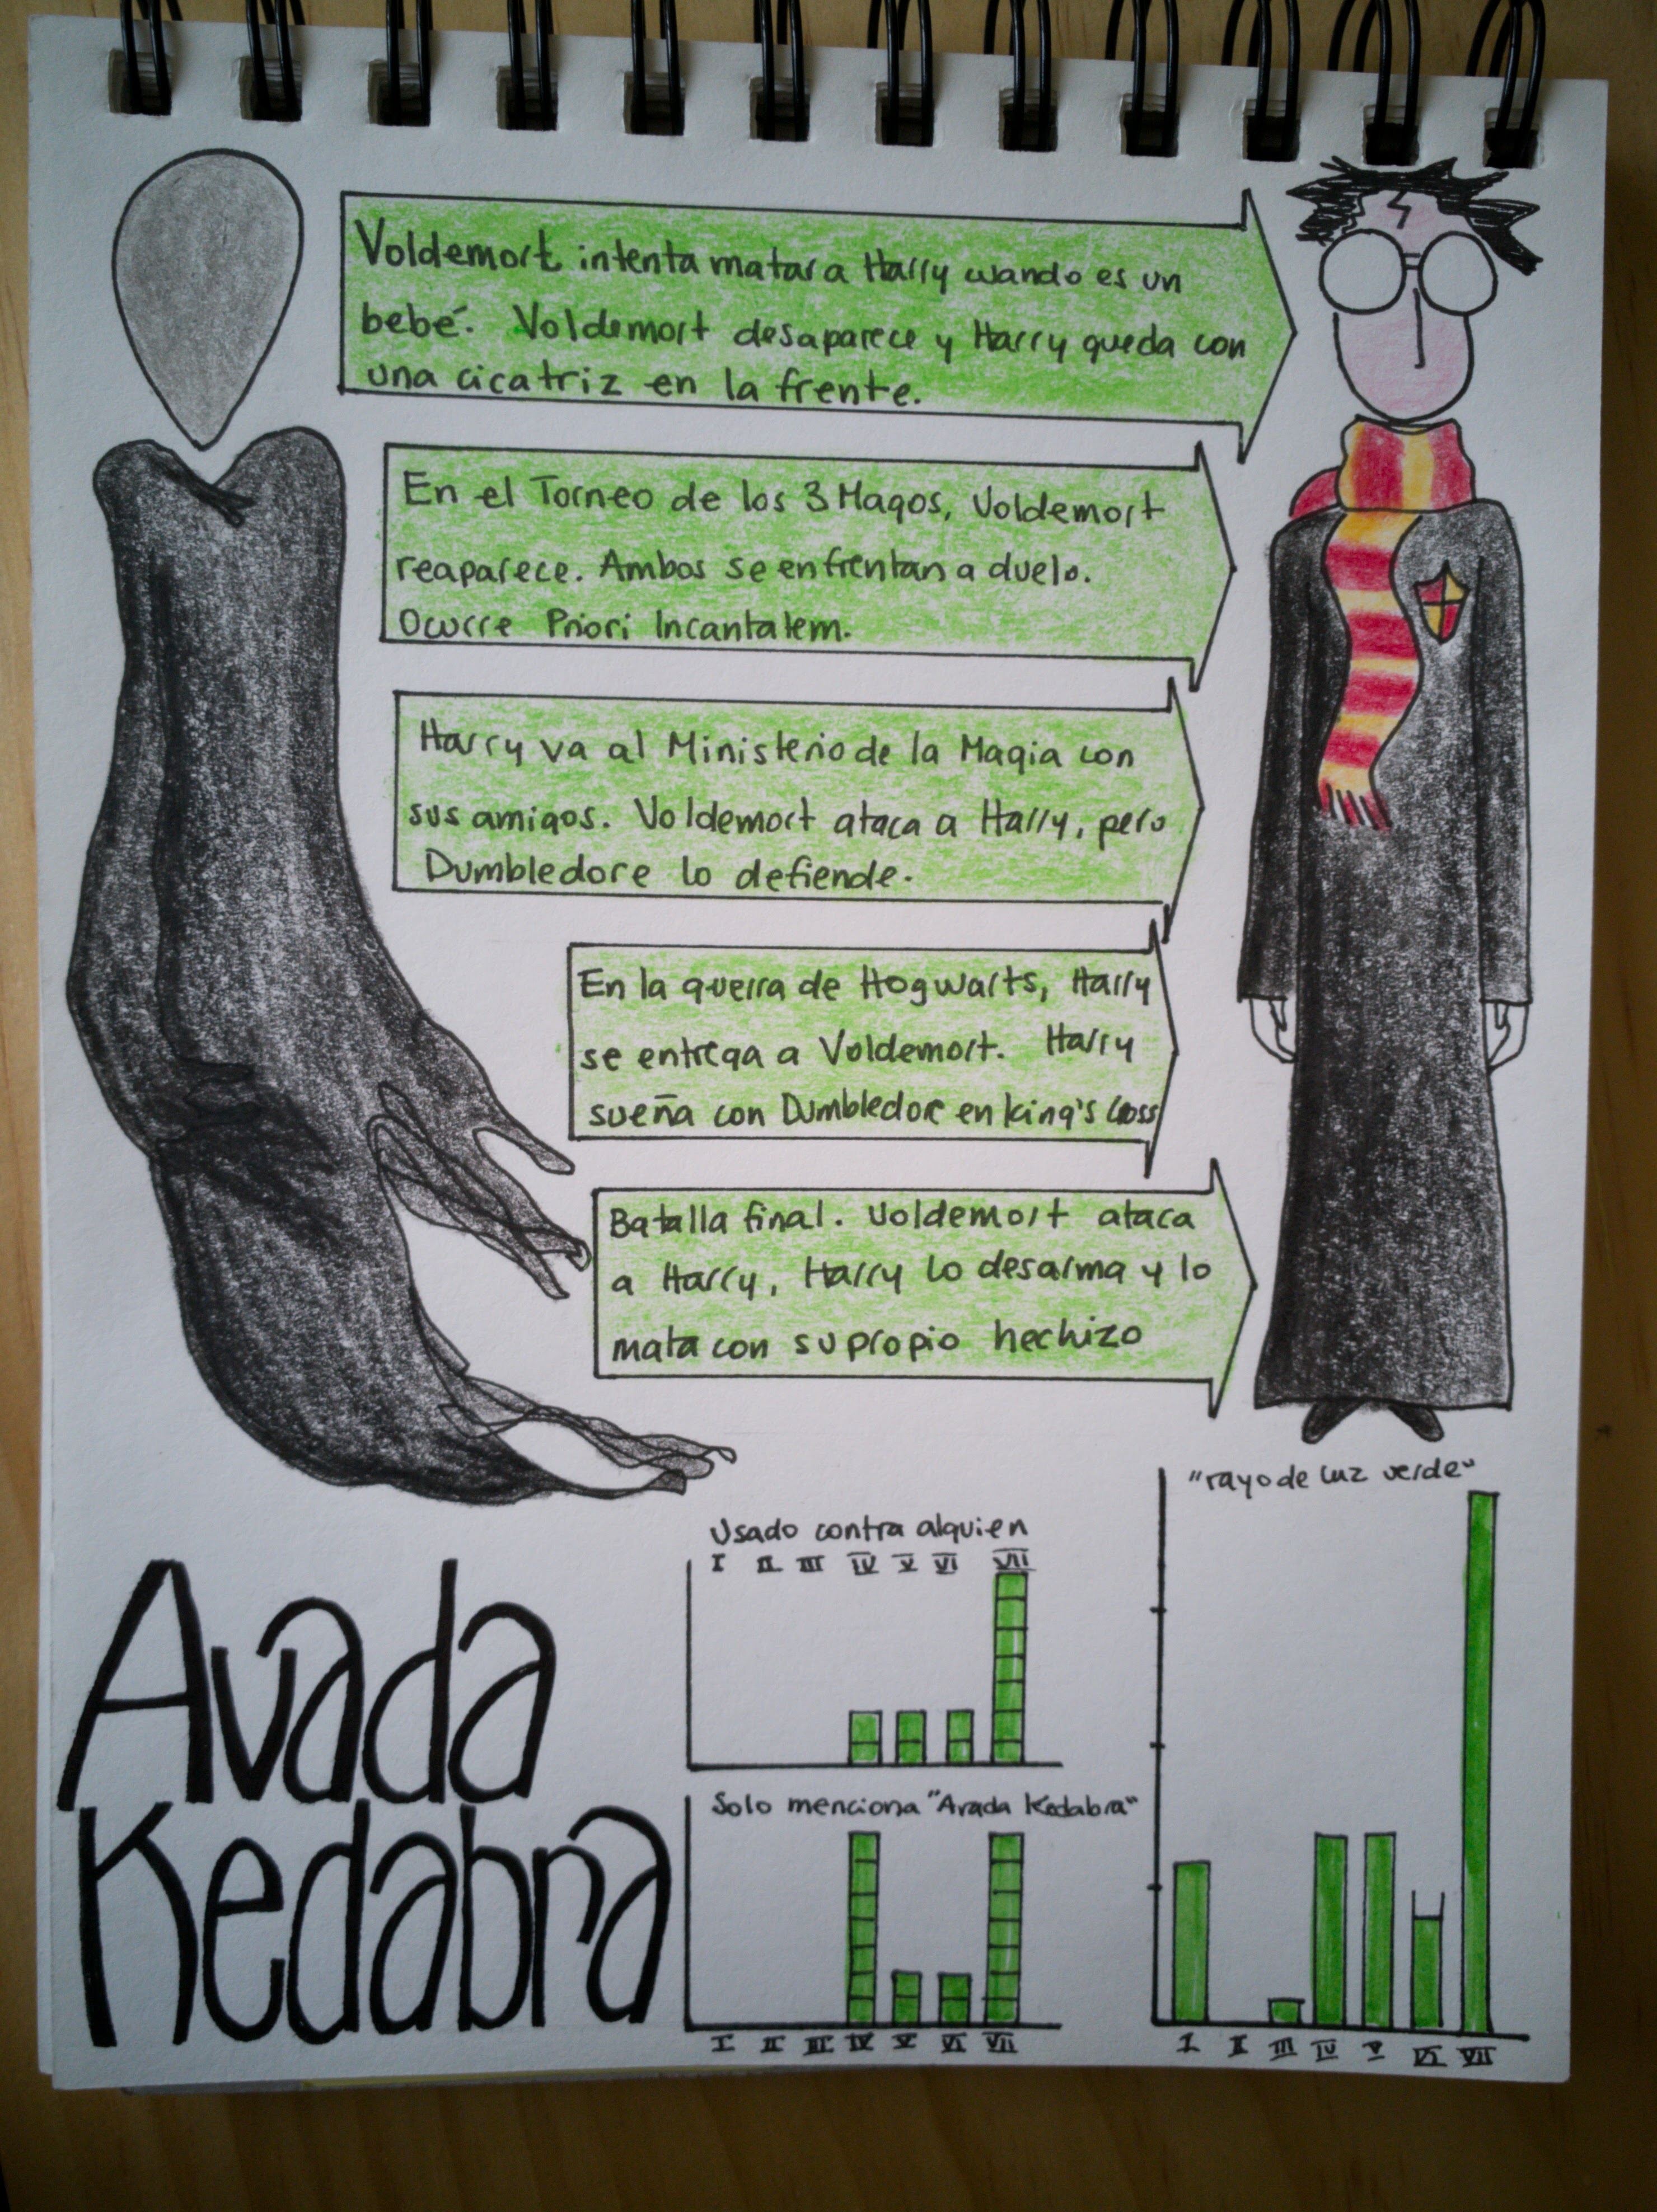 Voldemort intenta matar a Harry cuando es un
bebé. Voldemort desaparece y Harry queda con
una cicatriz en la frente.
En el Torneo de los 3 Magos, Voldemort
reaparece. Ambos se enfrentan a duelo.
Ocurre Priori Incantatem.
Harry va al Ministerio de la Magia con
sus amigos. Voldemort ataca a Harry, pero
Dumbledore lo defiende.
En la guerra de Hogwarts, Harry
se entrega a Voldemort. Harry
sueña con Dumbledore en king's Cross
Batalla final. Voldemort ataca
a Harry, Harry lo desarma y lo
mata con su propio hechizo
Avada
Kedabra
Usado contra alguien
I II III IV V VI VII
Solo menciona "Avada Kedabra"
I II III IV V VI VII
"rayo de luz verde"
I II III IV V VI VII